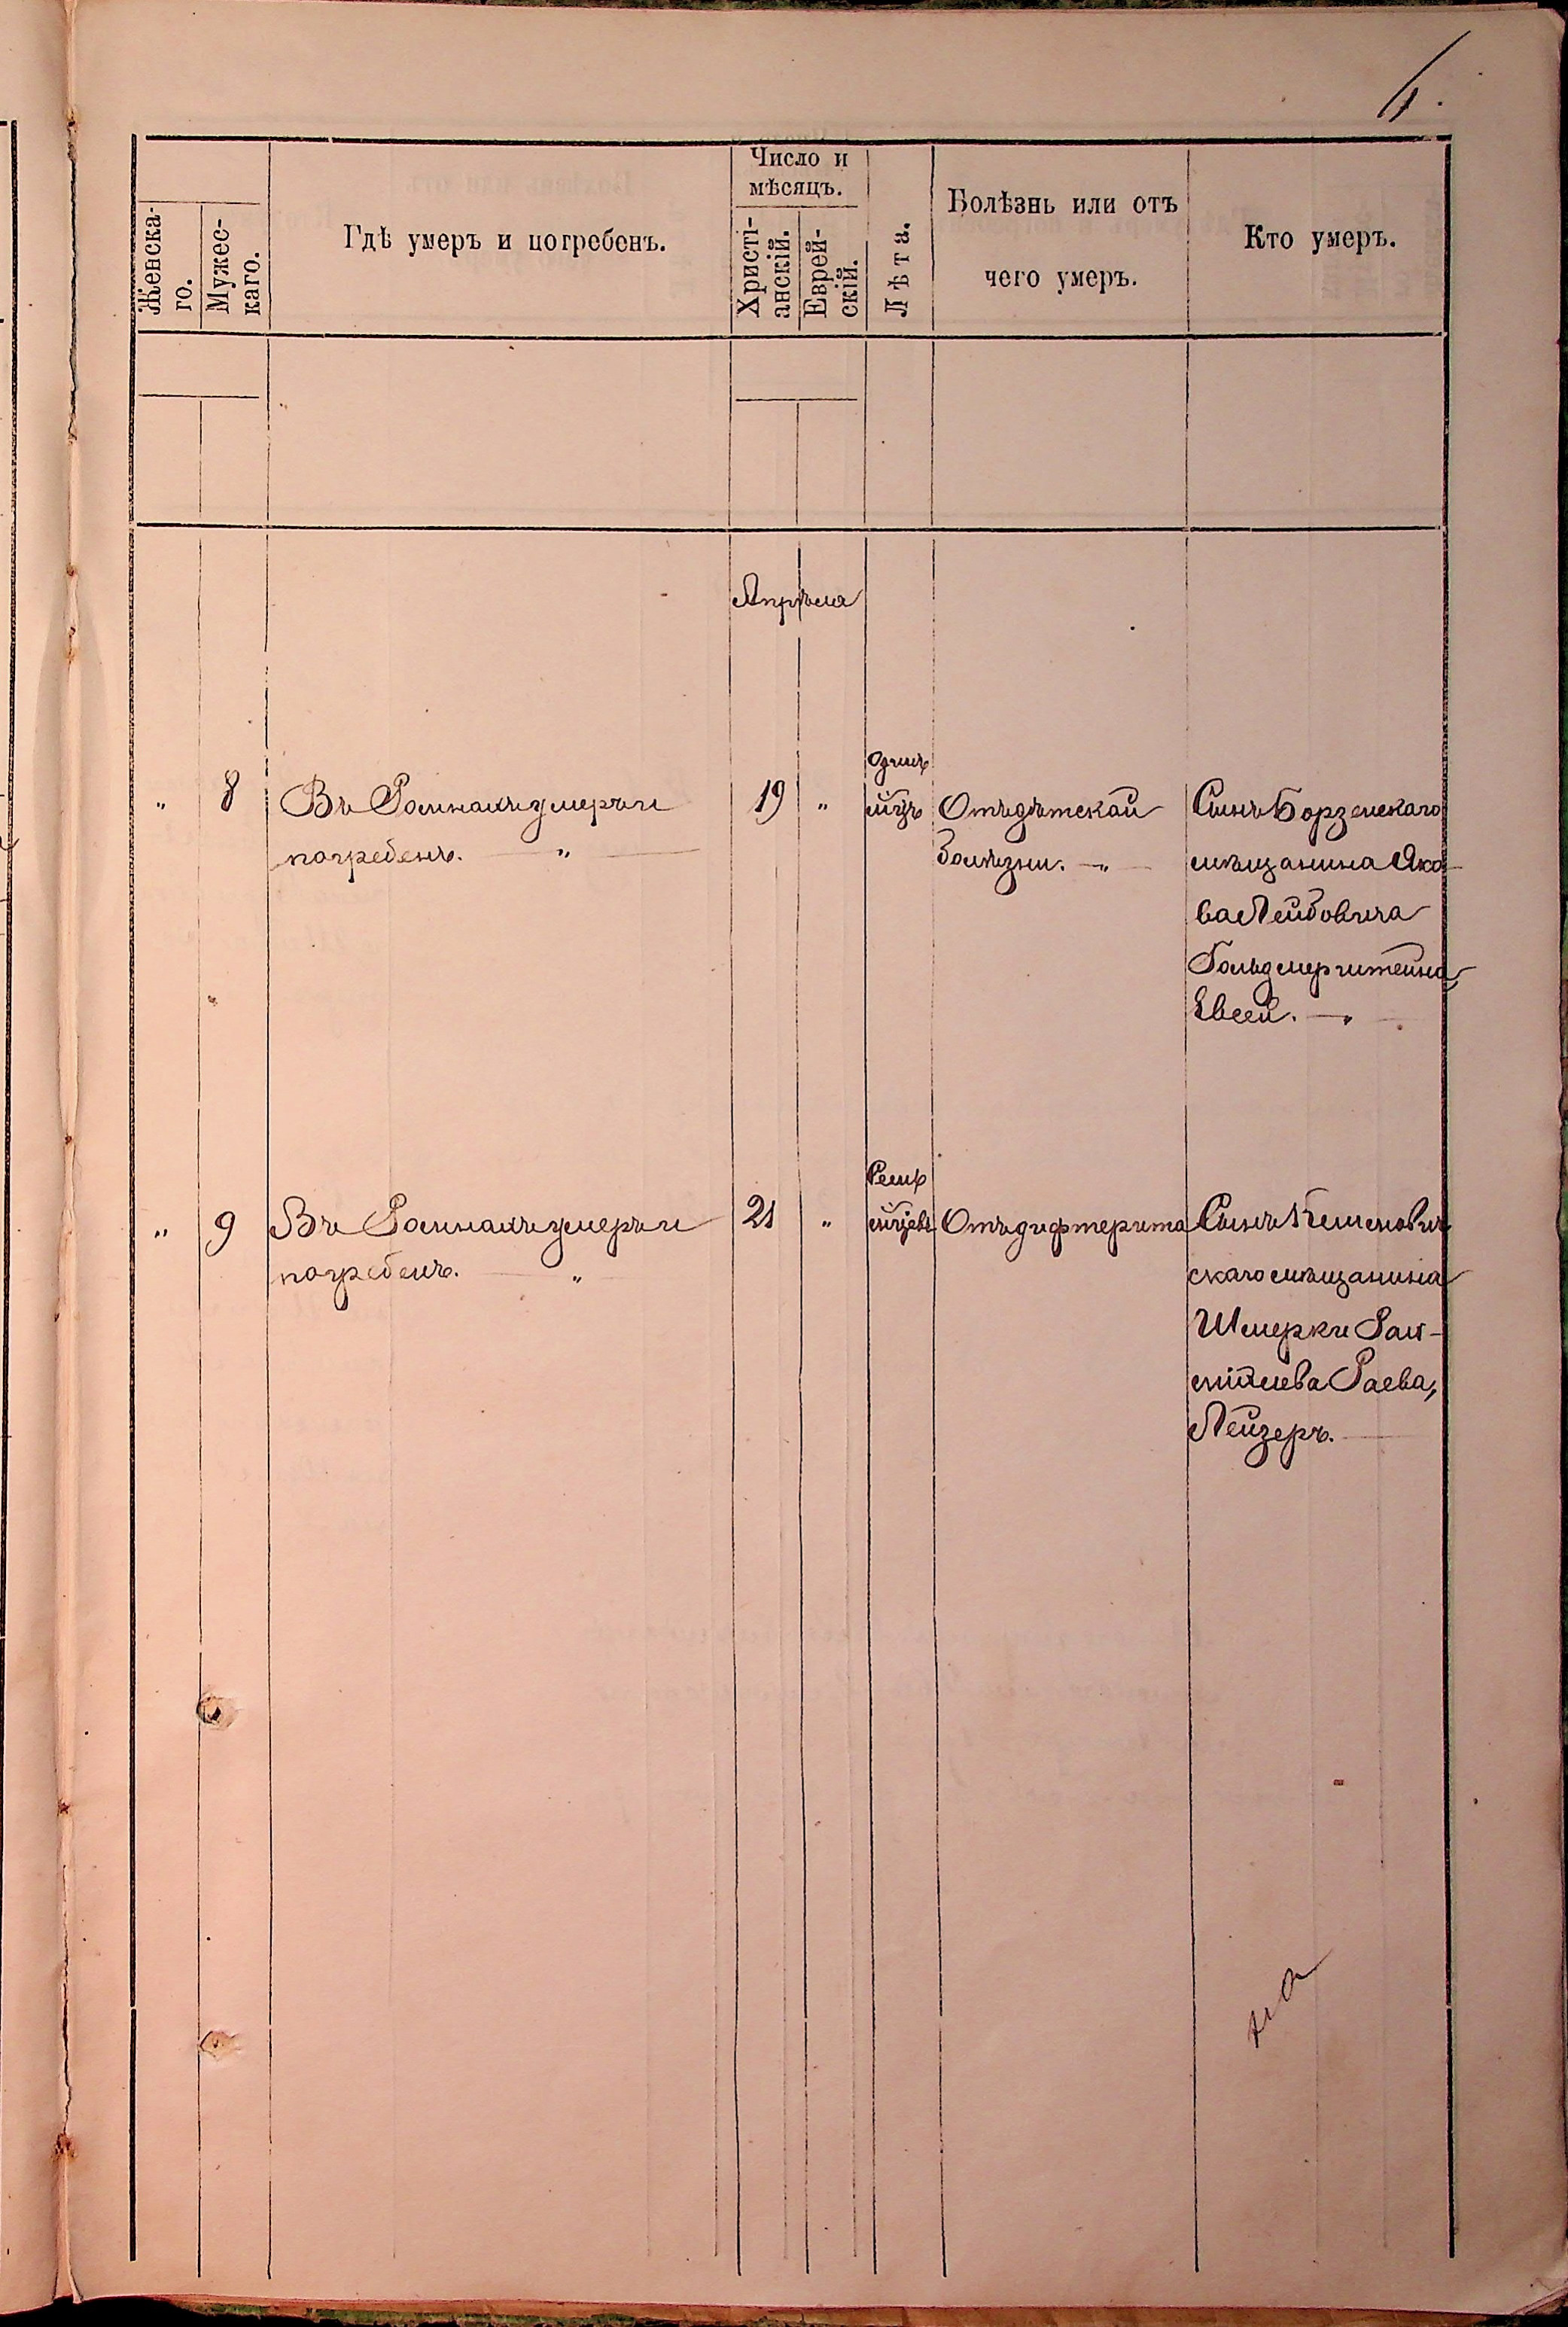 Женска-
го.
Мужес-
каго.
Гдѣ умеръ и погребенъ.
Число и
мѣсяцъ.
Христі-
анскій.
Еврей-
скій.
Лѣта.
Болѣзнь или отъ
чего умеръ.
Кто умеръ.
Апрѣля
„ 8 Въ Ромнахъ умеръ и
погребенъ. — „ —
19 „
Одинъ
мѣц
Отъ дѣтской
болѣзни. — „
Сынъ Борзенскаго
мѣщанина Яко-
ва Лейбовича
Евсей. — „
„ 9 Въ Ромнахъ умеръ и
погребенъ. — „
21 „
мѣцевъ
Отъ дифтерита
Сынъ Климович
скаго мѣщанина
Шмерки
Раева,
Лейзеръ. —